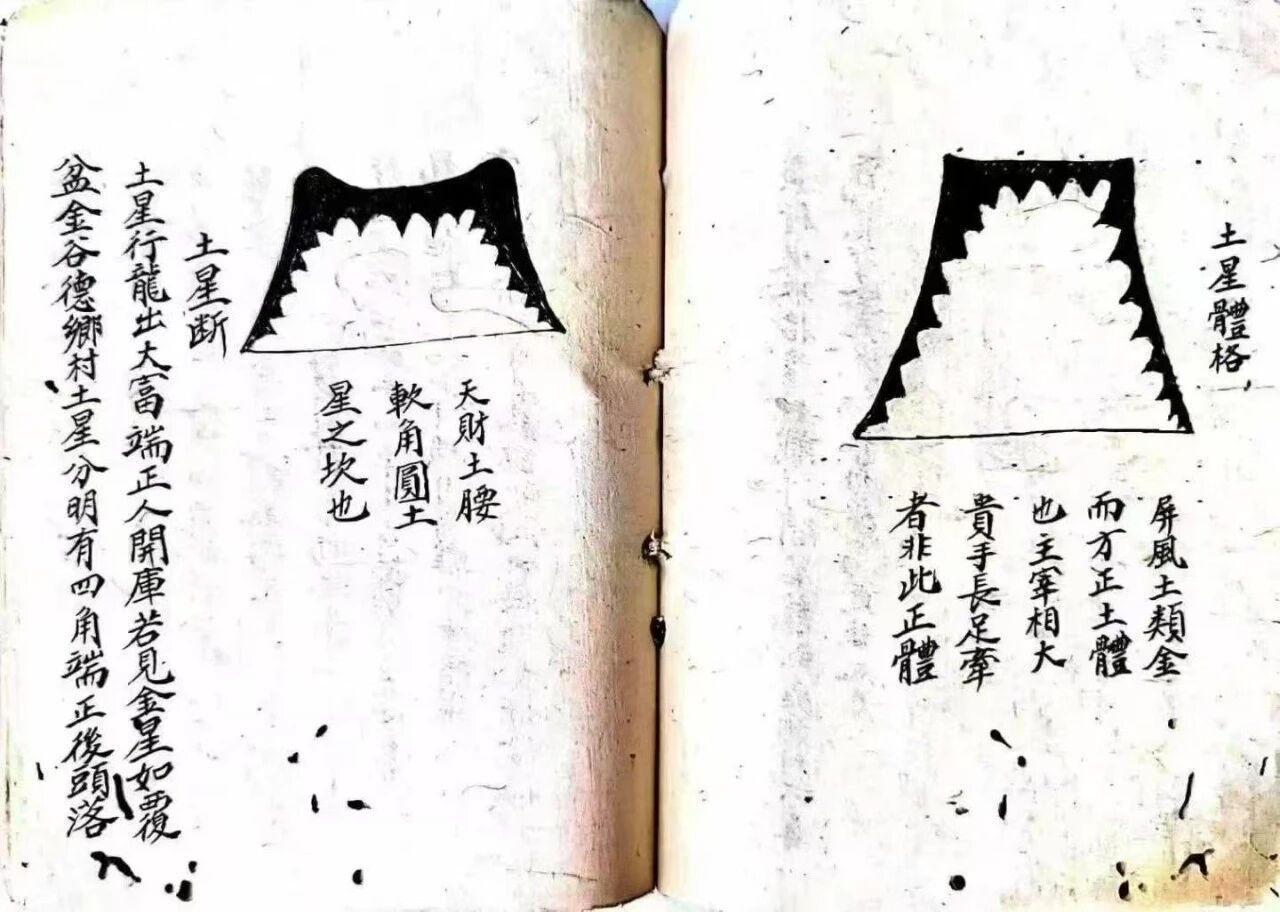 土星體格
屏風土類金
而方正土體
也主宰相大
貴手長足牽
者非此正體
天財土腰
軟角圓土
星之坎也
土星断
土星行龍出大富端正人開庫若見金星如覆
盆金谷德鄉村土星分明有四角端正後頭落